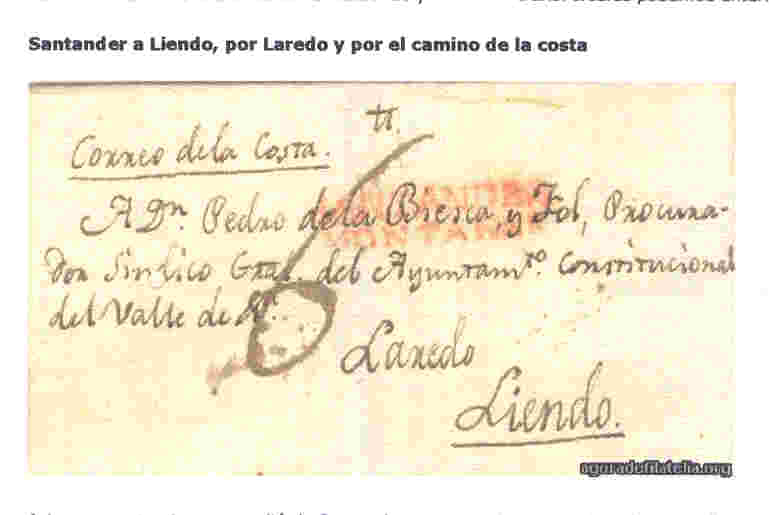 Santander a Liendo, por Laredo y por el camino de la costa
tt.
Correo dela Costa.
A Dn. Pedro dela Bresca, y Fol, Procura-
dor Sindico Gral. del Ayuntamto. Constitucional
del Valle de
6
Laredo
Liendo.
agoradefilatelia.org